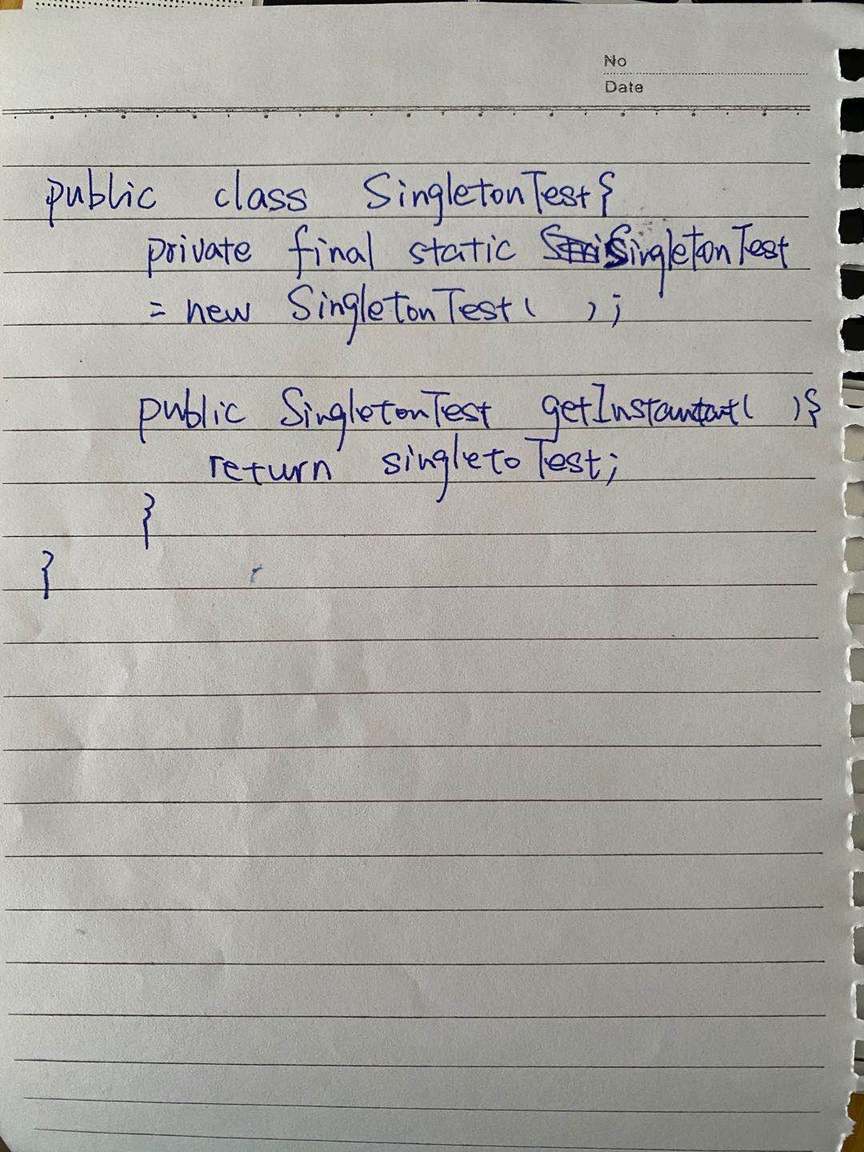 No
Date
public class SingletonTest{
private final static SingletonTest
= new SingletonTest( );
public SingletonTest ( ){
return singletoTest;
}
}